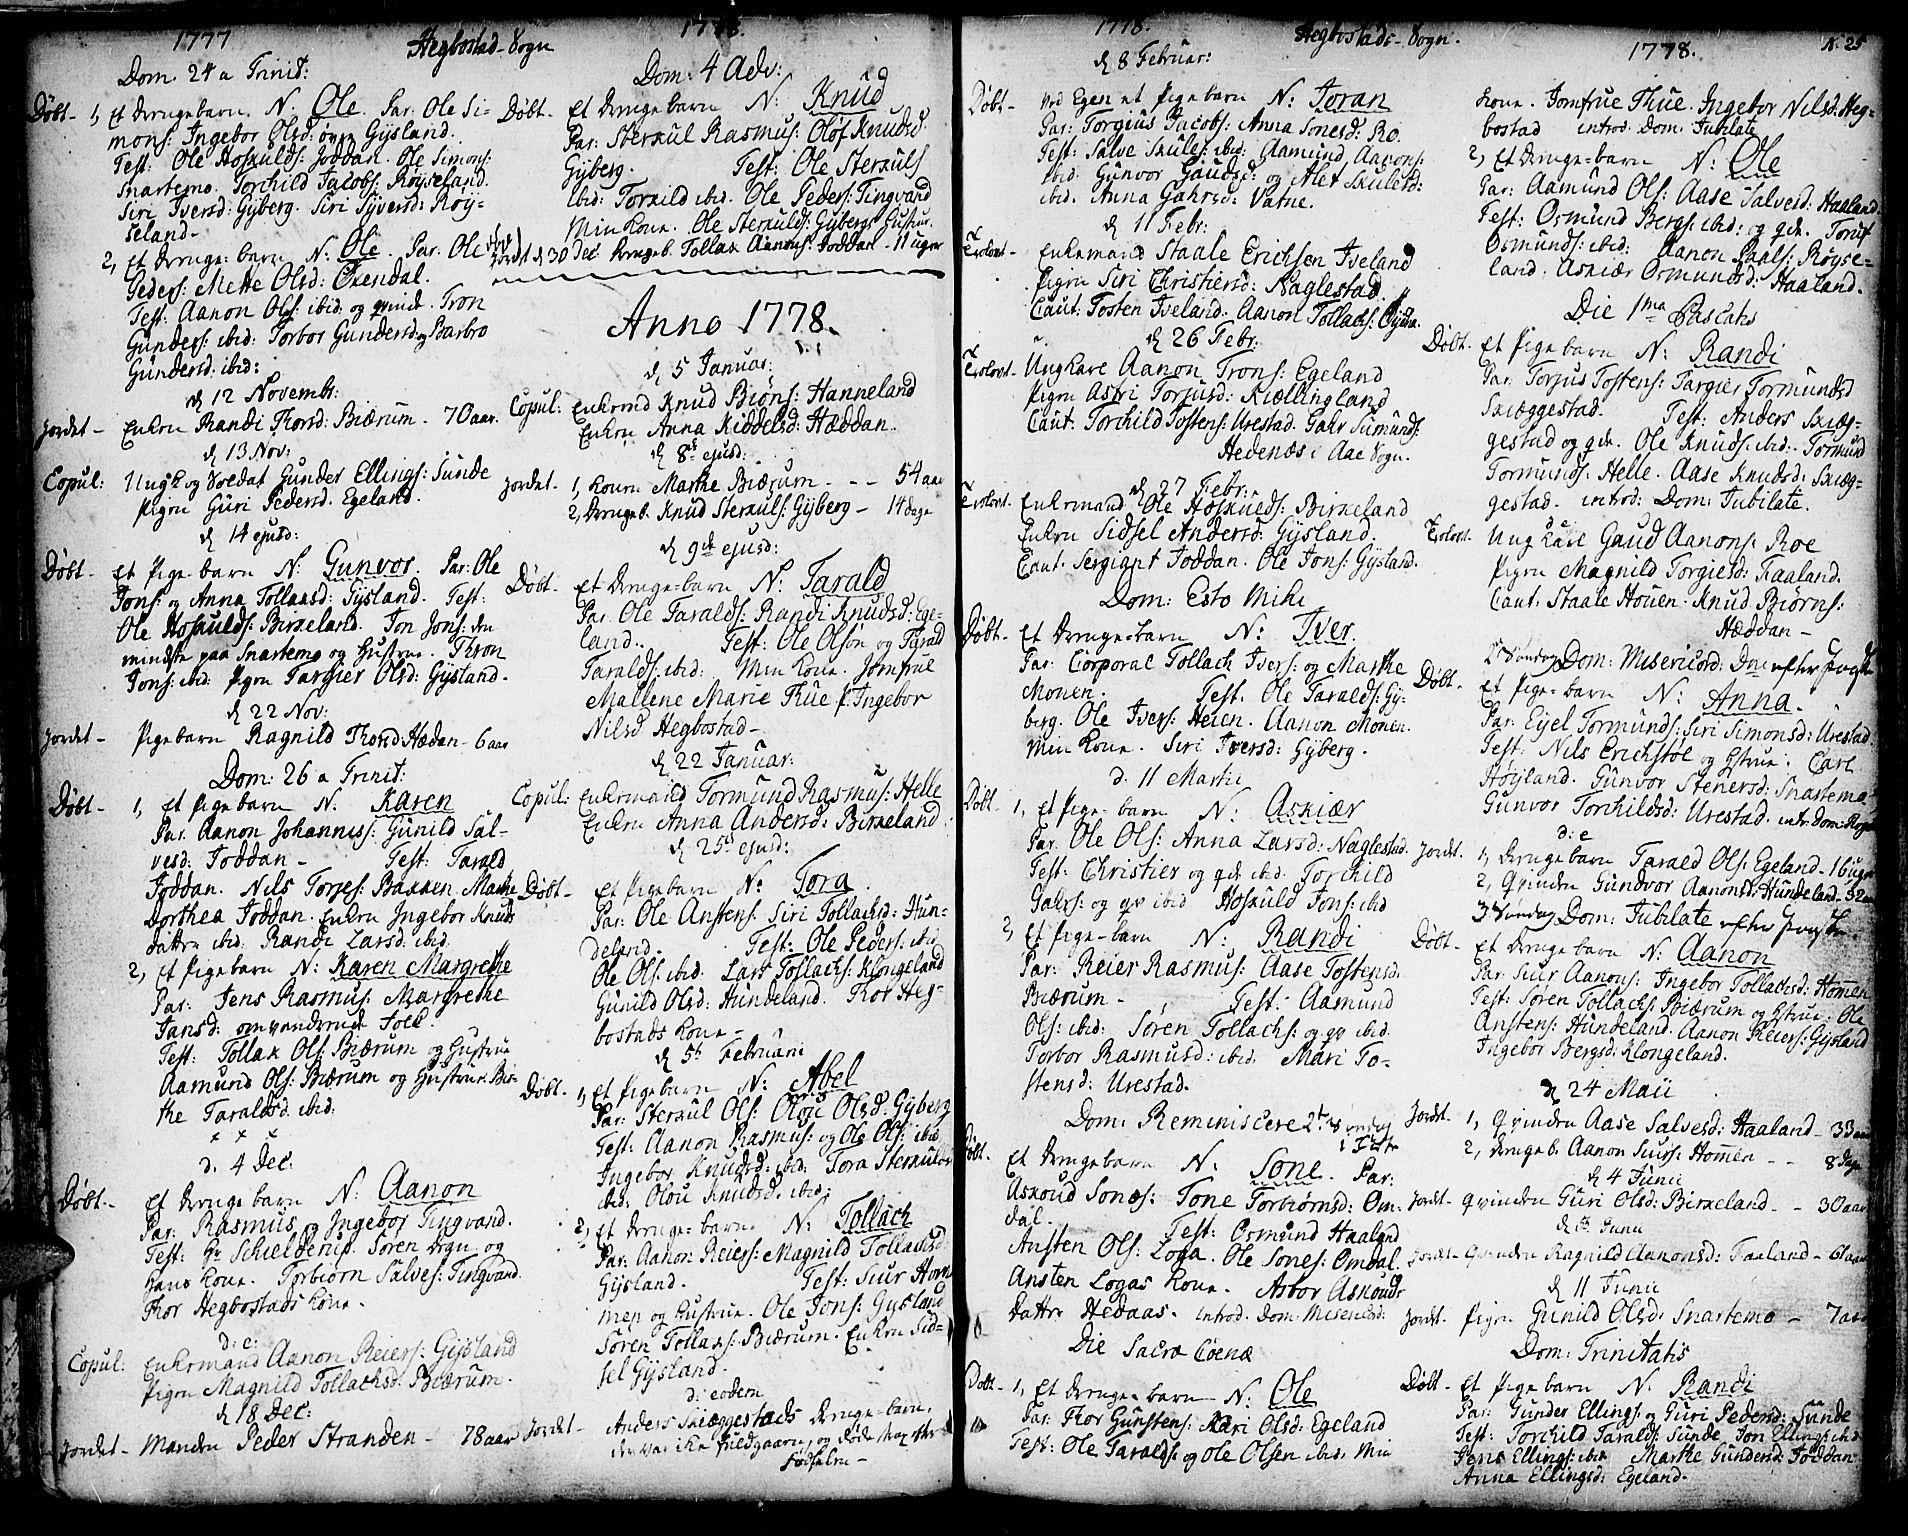 1777
Hegbostad-Sogn
Dom. 24 a Trinit:
Døbt - 1, Et drengebarn N: Ole. Par: Ole Si-
mons: Ingebor Olsd: øvre Gysland.
Test: Ole Hoskulds: Joddan. Ole Simons:
Snartemo. Torchild Jacobs: Røyseland.
Siri Iversd: Gyberg. Siri Syversd: Røy-
seland-
2, Et drenge-barn N: Ole. Par: Ole
Peders: Mette Olsd: Oxendal.
Test: Aanon Ols: ibid: og qvinde. Tron
Gunders: ibid: Torbor Gundersd: og Barbro
Gundersd. ibid:
d 12 Novembr:
Jordet - Enken Randi Thorsd: Biærum. 70 aar.
d 13 Nov:
Copul: Ungk og Soldat Gunder Ellings: Sunde
Pigen Guri Pedersd. Egeland.
d 14 ejusd:
Døbt - Et Pige-barn N: Gunvor. Par: Ole
Jons: og Anna Tollaksd: Gysland. Test:
Ole Hoskulds: Birkeland. Jon Jons: den
mindste paa Snartemo og Hustrue. Thron
Jons: ibid: Pigen Targier Olsd: Gysland.
d 22 Nov:
Jordet - Pigebarn Ragnild Thorsd Hædan - 6 aar
Dom: 26 a Trinit:
Døbt - 1, Et Pige barn N: Karen
Par. Aanon Johanness: Gunild Sal-
vesd: Joddan - Test: Tarald
Joddan. Nils Torjes: Bakken. Marthe
Dorthea Joddan. Enken Ingebor Knuds
datter ibid. Randi Larsd. ibid.
2, Et Pigebarn N: Karen Margrethe
Par: Jens Rasmus: Margrethe
Jansd: omvandrende Folk.
Test: Tollak Ols: Biærum og Hustrue
Aamund Ols: Biærum og Hustrue. Bir-
the Taraldsd. ibid:
x x x
d. 4 Dec:
Døbt - Et drenge barn N: Aanon
Par: Rasmus og Ingebor Tingvand.
Test: Hr Schielderup. Søren Degn og
hans Kone. Torbiørn Salves: Tingvand.
Thor Hegbostads Kone.
d: e:
Copul: Enkemand Aanon Reiers: Gysland
Pigen Magnild Tollachsd: Biærum.
d 18 Dec:
Jordet - Manden Peder Stranden - 78 aar
1778.
Dom: 4 Adv:
Døbt. Et drenge barn N: Knud
Par: Sterkul Rasmus: Oløf Knudsd.
Gyberg. Test: Ole Sterkuls
ibid: Torkild ibid. Ole Peders: Tingvand
Min Kone. Ole Sterkulds: Gybergs Hustrue.
Jordet d 30 Dec drengeb. Tollak Aanons: Joddan - 11 uger
Anno 1778.
d 5 Januar:
Copul: Enkemd Knud Biøns: Hanneland
Enken Anna Kiddelsd: Hæddan.
d 8de ejusd:
Jordet. 1, Konen Marthe Biærum. - - 54 aar
2, drengeb. Knud Sterkuls: Gyberg - 14 dage
d 9de ejusd:
Døbt. Et drenge-barn N: Tarald
Par. Ole Taralds: Randi Knudsd: Ege-
land. Test: Ole Olsøn og Tarald
Taralds: ibid: Min Kone. Jomfrue
Mallene Marie Thue P: Ingebor
Nilsd Hegbostad -
d 22 Januar.
Copul: Enkemand Tormund Rasmus: Helle
Enken Anna Andersd: Birkeland.
d 25d ejusd:
Døbt - Et Pigebarn N: Tora
Par: Ole Anstens: Siri Tollachsd: Hun-
deland. Test: Ole Peders: ibid
Ole Ols: ibid. Lars Tollachs: Klongeland
Gunild Olsd: Hundeland. Thor Heg-
bostads Kone -
d 5t Februarii
Døbt - 1, Et Pige barn N: Abel
Par: Sterkul Ols: Olou Olsd. Gyberg
Test: Aanon Rasmus: og Ole Ols: ibid
Ingebor Knudsd: ibid: Tora Sterkuls
ibid: Olou Knudsd. ibid:
2, Et drenge-barn. N: Tollach
Par: Aanon Reiers: Magnild Tollachsd
Gysland. Test: Siur Hom-
men og Hustrue. Ole Jons: Gysland
Søren Tollaks: Biærum. Enken Sid-
sel Gysland.
d: eodem
Jordet - Anders Skieggestads drenge-barn,
der var ikke fuldgaaen, og døde strax efter
Fødselen -
1778. Hegbostads-Sogn.
d 8 Februar:
Døbt - ved Egen et Pigebarn N: Joran
Par: Torgius Jacobs: Anna Sonesd: Ro.
Test: Salve Skules: ibid: Aamund Aanons:
ibid. Gunvor Gaudsd: og Alet Skulesd:
ibid. Anna Gahrsd: Vatne.
d 11 Febr:
Trolovt - Enkemand Staale Erichsen Iveland
Pigen Siri Christiersd: Naglestad.
Caut: Tosten Iveland: Aanon Tollachs:
d 26 Febr:
Trolovt - Ungkarl Aanon Trons: Egeland
Pigen Astri Torjusd: Kiællingland
Caut. Torchild Tostens: Urestad. Gahr Sumunds:
Hedenæs i Aae Sogn.
d 27 Febr:
Trolovt. Enkemand Ole Hoskulds: Birkeland
Enken Sidsel Andersd: Gysland.
Caut. Sergiant Joddan. Ole Jons: Gysland.
Dom: Esto Mihi
Døbt - Et drenge-barn N: Iver.
Par: Corporal Tollach Ivers: og Marthe
Monen. Test: Ole Taralds: Gy-
berg. Ole Ivers: Heien. Aanon Monen.
Min Kone. Siri Iversd: Gyberg.
d. 11 Martii
Døbt - 1, Et Pige-barn N: Askiær
Par. Ole Ols: Anna Larsd: Naglestad.
Test: Christier og qde ibid. Torchild
Gahrs: og qv ibid Hoskuld Jons: ibid
2, Et Pige-barn N: Randi
Par: Reier Rasmus: Aase Tostensd.
Biærum - Test: Aamund
Ols: ibid: Søren Tollachs: og qv ibid.
Torbor Rasmusd: ibid. Mari To-
stensd: Urestad.
Dom: Reminiscere 2den Søndag
i Faste
Døbt. Et drengebarn N: Sone. Par:
Askoud Sones: Tone Torbiørnsd: Om-
dal. Test: Osmund Haaland
Ansten Ols: Loga. Ole Sones: Omdal.
Ansten Logas Kone. Asbor Askouds
datter Hedaas. introd. Dom: Misericord:
Die Sacræ Coenæ
Døbt - 1, Et drenge-barn N: Ole
Par: Thor Gunstens: Kari Olsd: Egeland
Test: Ole Taralds: og Ole Olsen ibid: Min
1778. N. 25
Kone. Jomfrue Thue. Ingebor Nilsd: Heg-
bostad introd. Dom: Jubilate
2, Et drenge-barn N: Ole
Par: Aamund Ols: Aase Salvesd: Haaland.
Test: Osmund Bergs: ibid: og qde. Tonif
Osmunds: ibid: Aanon Paals: Røyse-
land: Askiær Osmundsd: Haaland.
Die 1ma Paschatis
Døbt. Et Pigebarn N: Randi
Par: Torjus Tostens: Targier Tormundsd
Skieggestad. Test: Anders Skieg-
gestad og qde. Ole Knuds: ibid: Tormund
Tormunds: Helle. Aase Knudsd: Skieg-
gestad. introd: Dom: Jubilate.
Trolovt. Ung Karl Gaud Aanons: Roe
Pigen Magnild Torgiesd: Faaland.
Caut: Staale Houen. Knud Biørns:
Hæddan -
2 Søndag Dom: Misericord: Dni efter Paaske
Døbt. Et Pige-barn N: Anna.
Par: Eyel Tormunds: Siri Simonsd: Urestad.
Test: Nils Erichstøl og Hstrue. Carl
Høyland. Gunvor Stenersd: Snartemo
Gunvor Torchildsd: Urestad. intr: Dom:
d: e
Jordt. 1, drengebarn Tarald Ols: Egeland - 16 uger
2, Qvinden Gundvor Aanonsd: Hundeland - 32 aar
3 Søndag Dom: Jubilate efter Paaske
Døbt - Et drenge barn N: Aanon
Par: Siur Aanons: Ingebor Tollachsd: Hommen
Test: Søren Tollachs: Biærum og Hstrue: Ole
Anstens: Hundeland: Aanon Reiers: Gysland
Ingebor Bergsd: Klongeland.
d 24 Maii
Jordet. 1, Qvinden Aase Salvesd: Haaland - 33 aar
2, drengeb. Aanon Siurs: Hommen - - 8 dage
d 4 Junii
Jordet - qvinden Guri Olsd: Birkeland - - 30 aar
Junii
Jordet - Qvinden Ragnild Aanonsd: Faaland - 61 aar
d 11 Junii
Jordt. Pigen Gunild Olsd: Snartemo - 7 aar
Dom: Trinitatis
Døbt - Et Pige barn N: Randi
Par: Gunder Ellings: og Guri Pedersd: Sunde
Test: Torchild Taralds: Sunde Jon Ellings: ibid
Jens Ellings: ibid Marthe Gundersd: Joddan
Anna Ellingsd: Egeland.